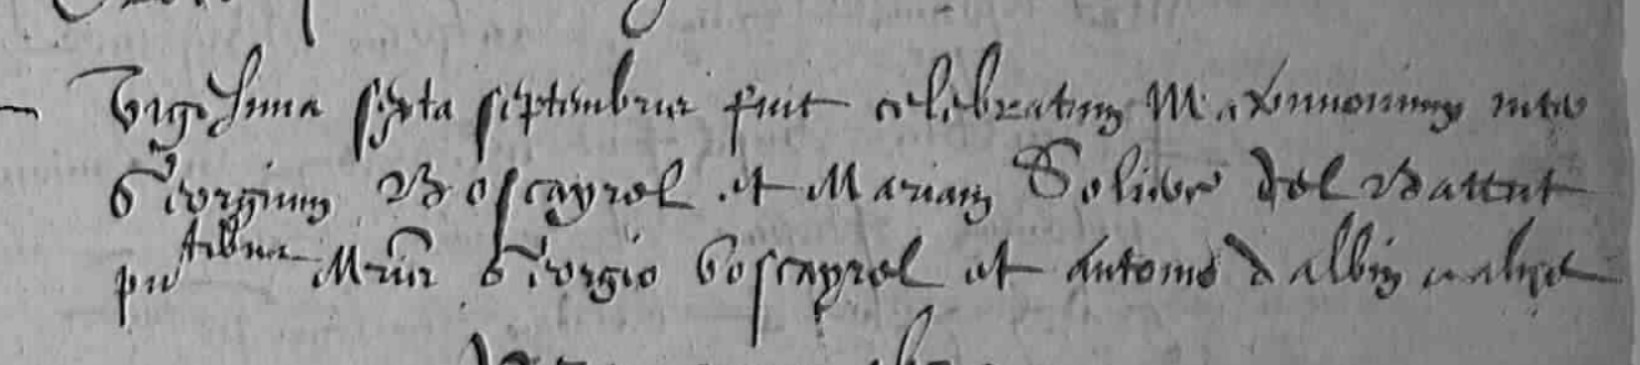 Vigesima sexta septembris fuit celebratum Matrimonium inter
Georgium Boscayrol et Mariam Solier del Battut
pntibus Mris Georgio Boscayrol et Antonio Dalbin